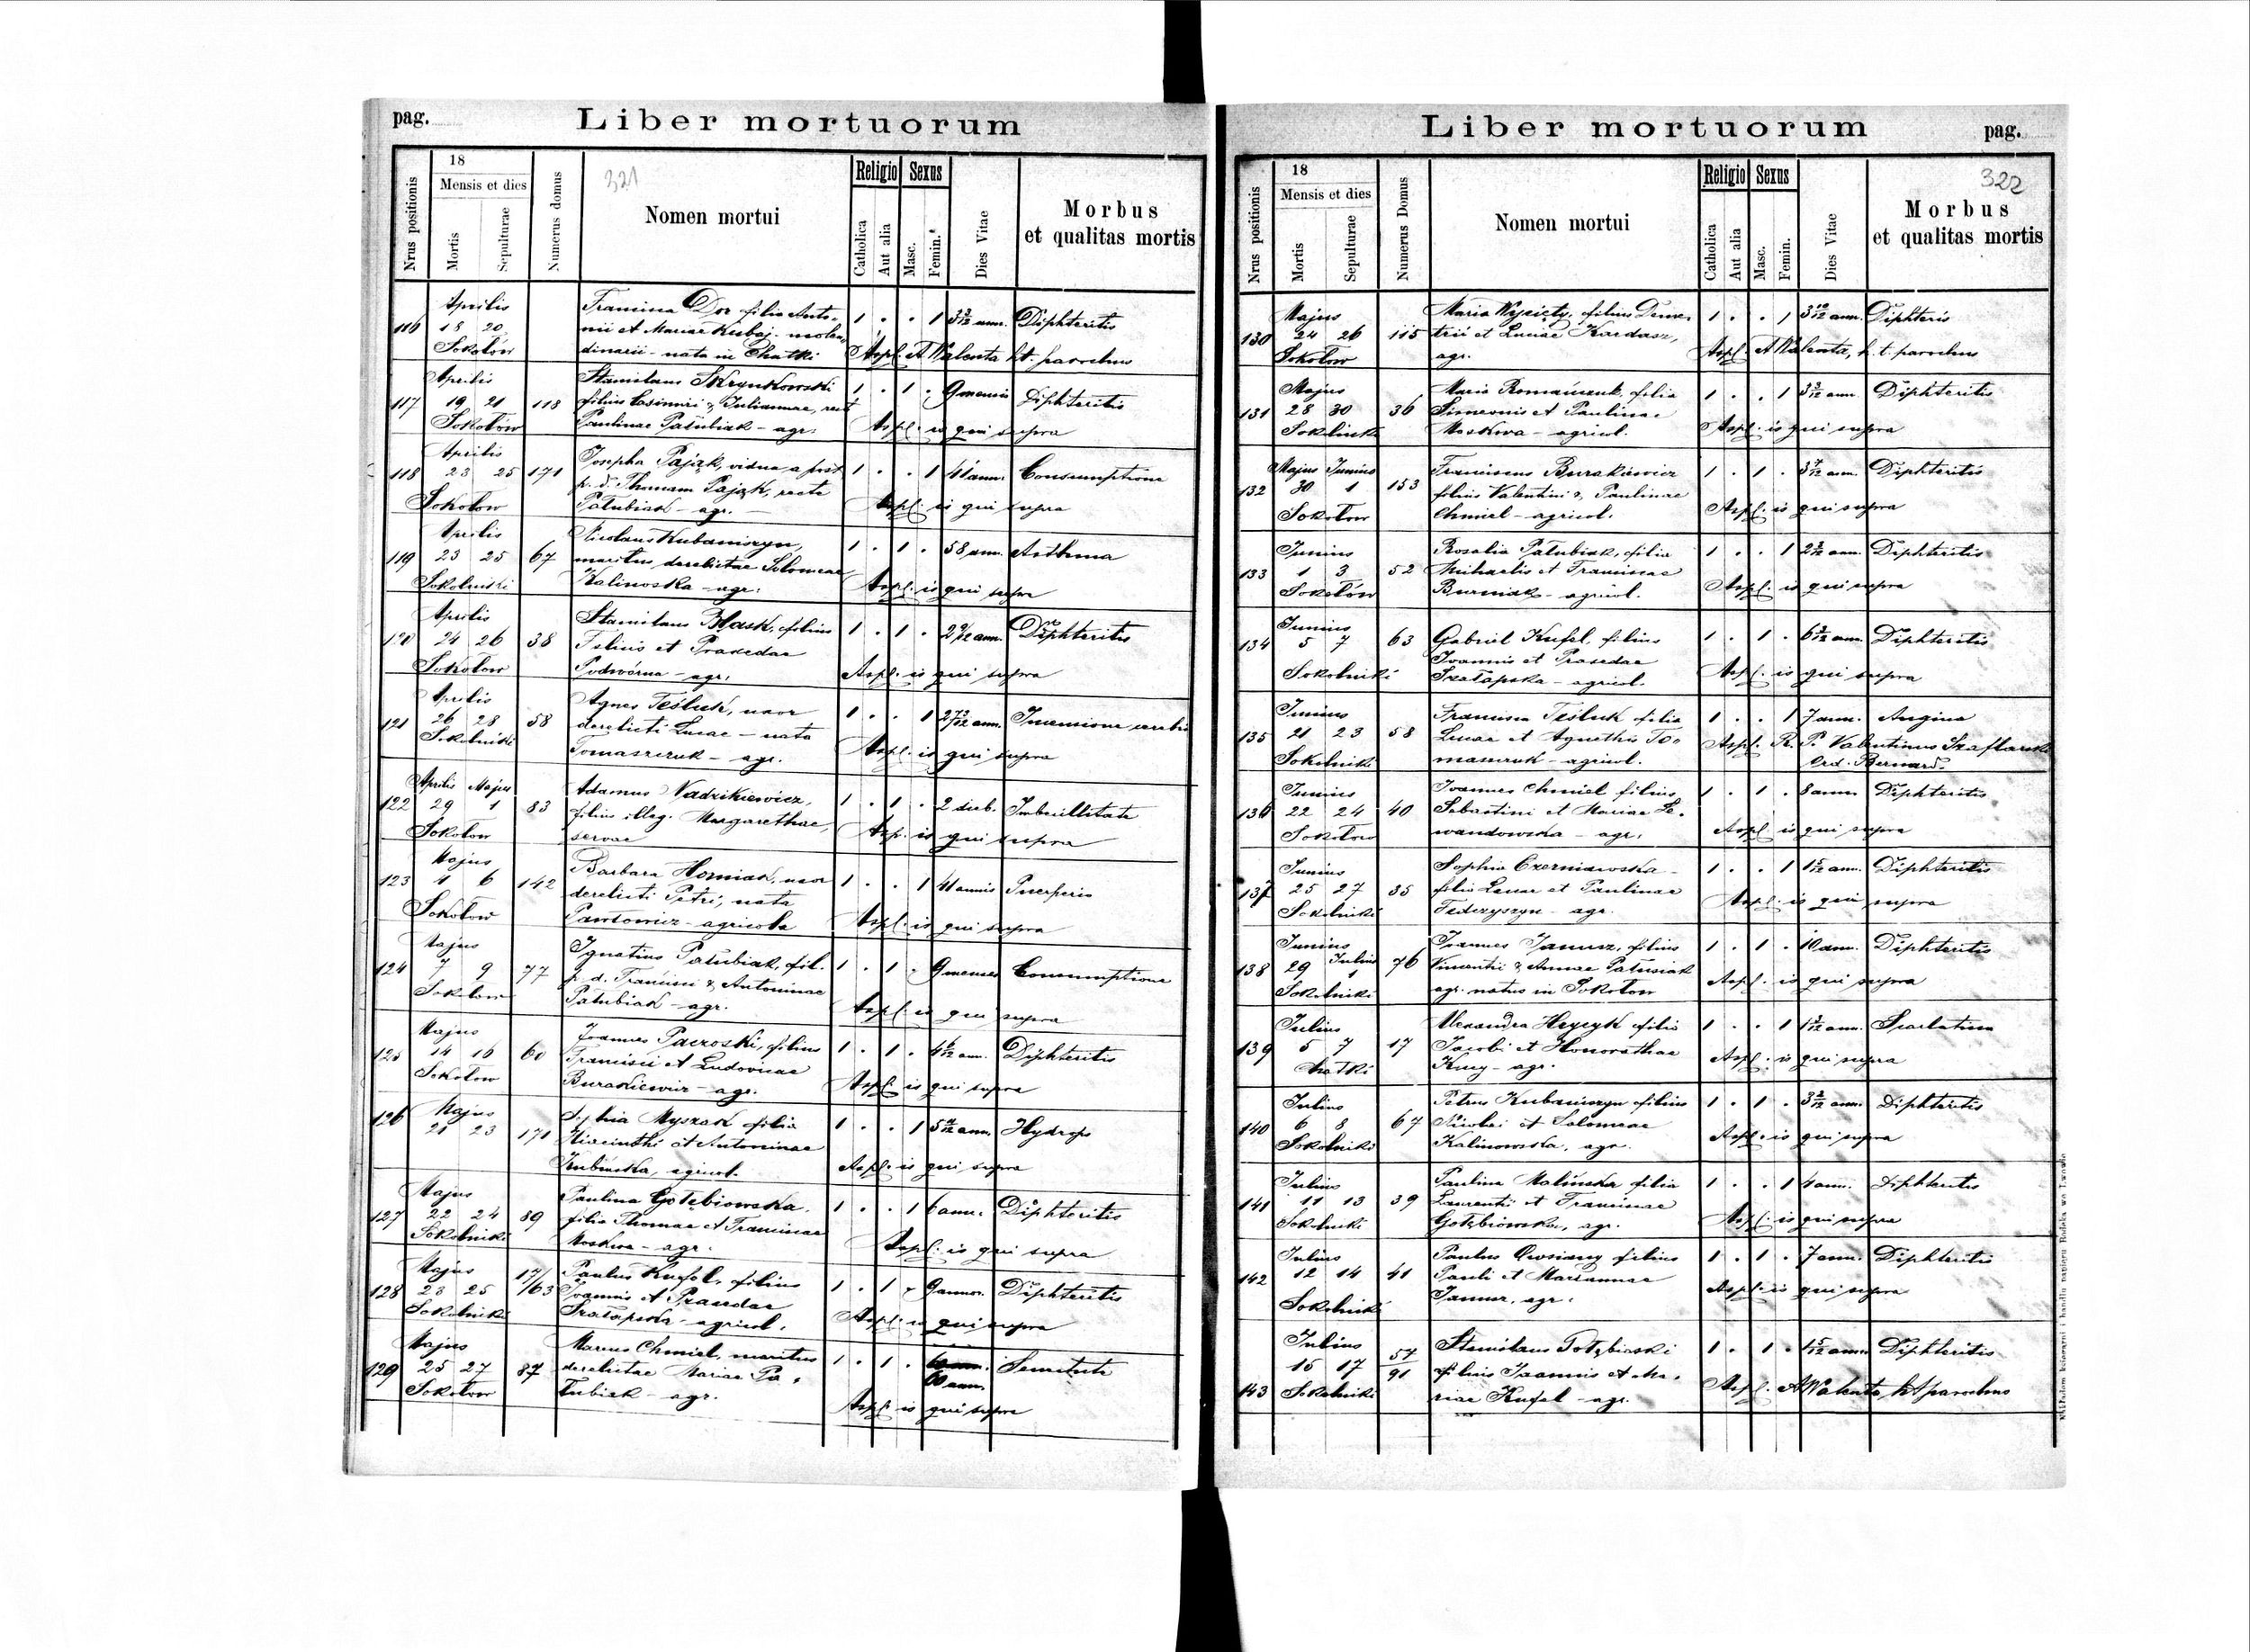 pag.
Liber mortuorum
Nrus positionis
18
Mensis et dies
Mortis
Sepulturae
Numerus domus
321
Nomen mortui
Religio
Catholica
Aut alia
Sexus
Masc.
Femin.
Dies Vitae
Morbus
et qualitas mortis
Aprilis
116 18 20 Sokołów
Francisca Dor filia Anto-
nii et Mariae Kubaj - molen-
dinarii - nata in Chatki
1 . . 1 3 3/12 ann. Diphteritis
Aspl. A Walenta h.t. parochus
Aprilis
117 19 21 118 Sokołów
Stanislaus Skrynkowski
filius Casimiri & Juliannae, recte
Paulinae Patubiak - agr.
1 . 1 . 9 mensis Diphteritis
Aspl. is qui supra
Aprilis
118 23 25 171 Sokołow
Josepha Pająk, vidua a post
p. d. Thomam Pająk, recte
Patubiak - agr.
1 . . 1 41 ann. Consumptione
Aspl. is qui supra
Aprilis
119 23 25 67 Sokolniki
Nicolaus Kubaniszyn,
maritus derelictae Solomeae
Kalinoska - agr.
1 . 1 . 58 ann. Asthma
Aspl. is qui supra
Aprilis
120 24 26 38 Sokołow
Stanislaus Błask, filius
Felicis et Praxedae
Podwórna - agr.
1 . 1 . 2 9/12 ann. Diphteritis
Aspl. is qui supra
Aprilis
121 26 28 58 Sokolniki
Agnes Teśluk, uxor
derelicti Lucae - nata
Tomaszczuk - agr.
1 . . 1 ann.
Aspl. is qui supra
Aprilis Majus
122 29 1 83 Sokołow
Adamus Nadzikiewicz,
filius illeg. Margarethae,
servae
1 . 1 . 2 dieb. Imbecillitate
Asp. is qui supra
Majus
123 4 6 142 Sokołow
Barbara Horniak, uxor
derelicti Petri, nata
Pawłowicz - agricola
1 . . 1 41 annis Puerperio
Aspl. is qui supra
Majus
124 7 9 77 Sokołow
Ignatius Patubiak, fil.
p. d. Francisci & Antoninae
Patubiak - agr.
1 . 1 . 9 menses Consumptione
Aspl. is qui supra
Majus
125 14 16 60 Sokołow
Joannes Paczoski, filius
Francisci et Ludovicae
Burakiewicz - agr.
1 . 1 . 4 6/12 ann. Diphteritis
Aspl. is qui supra
Majus
126 21 23 171
Sophia Myszak filia
Hiacinthi et Antoninae
Kubińska, agricol.
1 . . 1 ann. Hydrops
Aspl. is qui supra
Majus
127 22 24 89 Sokolniki
Paulina Gołębiowska,
filia Thomae et Franciscae
Moskwa - agr.
1 . . 1 6 ann. Diphteritis
Aspl. is qui supra
Majus
128 23 25 17/63 Sokolniki
Paulus Kufel, filius
Joannis et Praxedae
Szałapska - agricol.
1 . 1 . 9 annor. Diphteritis
Aspl. is qui supra
Majus
129 25 27 87 Sokołow
Marcus Chmiel, maritus
derelictae Mariae Pa-
tubiak - agr.
1 . 1 . 60 ann. Senectute
Aspl. is qui supra
Liber mortuorum
pag.
Nrus positionis
18
Mensis et dies
Mortis
Sepulturae
Numerus Domus
Nomen mortui
Religio
Catholica
Aut alia
Sexus
Masc.
Femin.
Dies Vitae
322
Morbus
et qualitas mortis
Majus
130 24 26 115 Sokołow
Maria Wypięty, filius Deme-
trii et Luciae Kardasz,
agr.
1 . . 1 3 10/12 ann. Diphteris
Aspl. A Walenta, h. t. parochus
Majus
131 28 30 36 Sokolniki
Maria Romańczuk, filia
Simeonis et Paulinae
Moskwa - agricol.
1 . . 1 3 3/12 ann. Diphteritis
Aspl. is qui supra
Majus Junius
132 30 1 153 Sokołow
Franciscus Burakiewicz
filius Valentini & Paulinae
Chmiel - agricol.
1 . 1 . 3 7/12 ann. Diphteritis
Aspl. is qui supra
Junius
133 1 3 52 Sokołów
Rosalia Patubiak, filia
Michaelis et Franciscae
Burniak - agricol.
1 . . 1 ann. Diphteritis
Aspl. is qui supra
Junius
134 5 7 63 Sokolniki
Gabriel Kufel filius
Joannis et Praxedae
Szałapska - agricol.
1 . 1 . ann. Diphteritis
Aspl. is qui supra
Junius
135 21 23 58 Sokolniki
Francisca Teśluk filia
Lucae et Agnethis To-
maszczuk - agricol.
1 . . 1 7 ann. Angina
Aspl. R. P. Valentinus Szaflarski
Ord. Bernard.
Junius
136 22 24 40 Sokołow
Joannes Chmiel filius
Sebastiani et Mariae Le-
wandowska - agr.
1 . 1 . 8 annor. Diphteritis
Aspl. is qui supra
Junius
137 25 27 35 Sokolniki
Sophia Czerniawska -
filia Lucae et Paulinae
Fedczyszyn - agr.
1 . . 1 1 5/12 ann. Diphteritis
Aspl. is qui supra
Junius
138 29 Julius 1 76 Sokolniki
Joannes Janusz, filius
Vincentii & Annae Patusiak
agr. natus in Sokołow
1 . 1 . 10 ann. Diphteritis
Aspl. is qui supra
Julius
139 5 7 17 Chatki
Alexandra Hrycyk filia
Jacobi et Honorathae
Kmy - agr.
1 . . 1 ann. Scarlatina
Aspl. is qui supra
Julius
140 6 8 67 Sokolniki
Petrus Kubaniszyn filius
Nicolai et Salomeae
Kalinowska, agr.
1 . 1 . ann. Diphteritis
Aspl. is qui supra
Julius
141 11 13 39 Sokolniki
Paulina Malińska filia
Laurentii et Franciscae
Gołębiowska, agr.
1 . . 1 4 ann. Diphteritis
Aspl. is qui supra
Julius
142 12 14 41 Sokolniki
Paulus Owsiany filius
Pauli et Mariannae
Janusz, agr.
1 . 1 . 7 ann. Diphteritis
Aspl. is qui supra
Julius
143 15 17 57/91 Sokolniki
Stanislaus Gołębioski
filius Joannis et Ma-
riae Kufel - agr.
1 . 1 . 5/12 ann. Diphteritis
Aspl. A Walenta h.t parochus